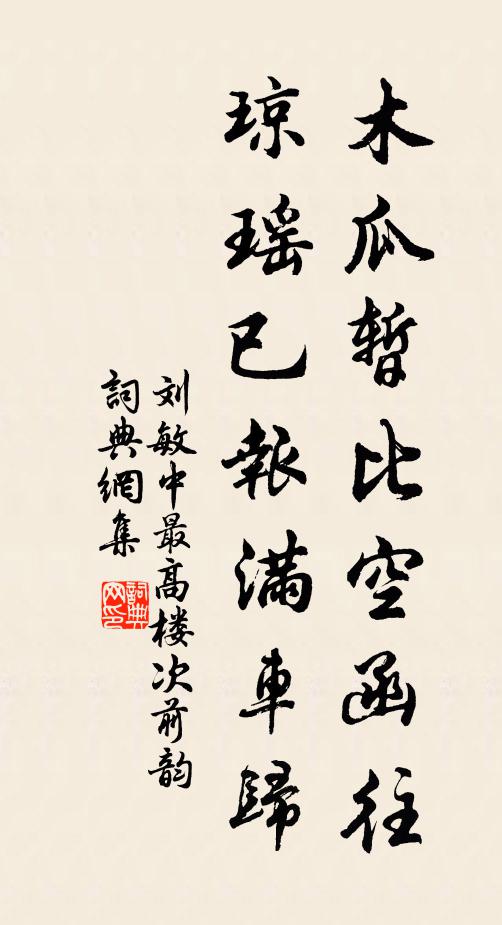 木瓜暫比空函往
琼瑶已報满車歸
刘敏中最高楼次前韵
詞典網集
詞典
网印